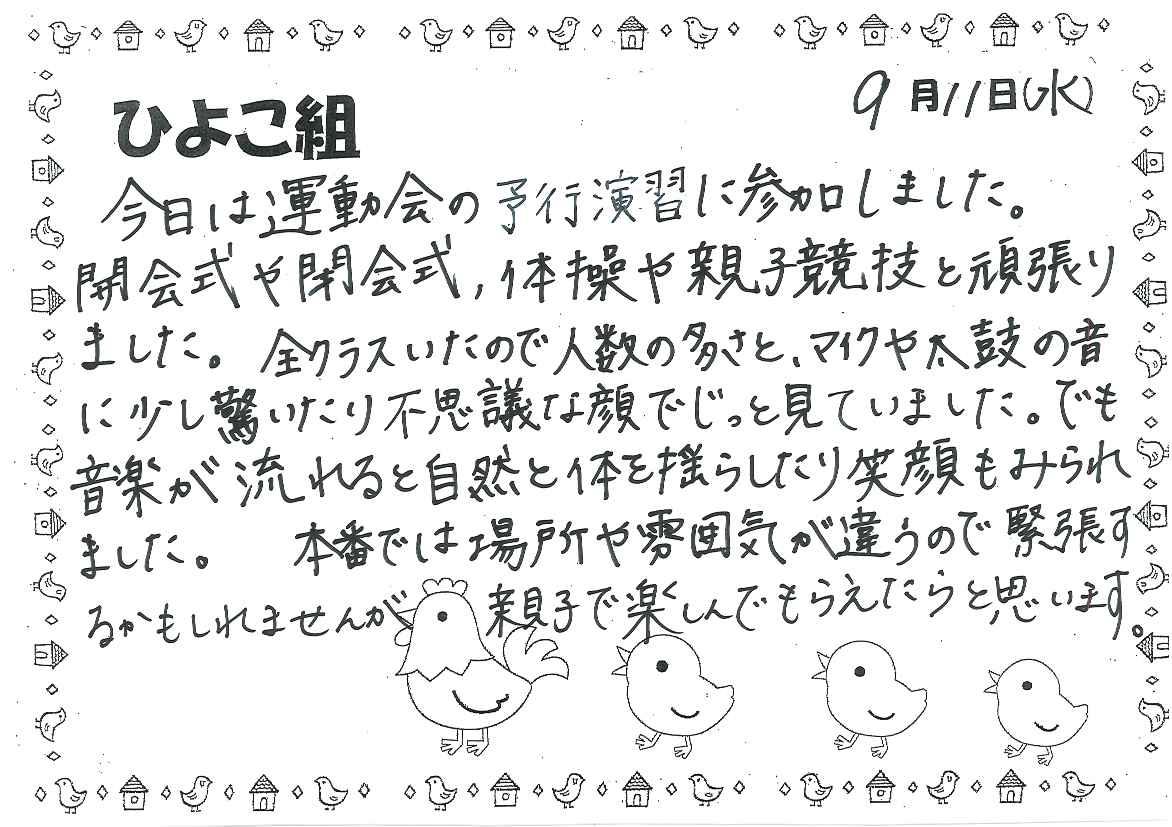 9月11日(水)
ひよこ組
今日は運動会の予行演習に参加しました。
開会式や閉会式,体操や親子競技と頑張り
ました。全クラスいたので人数の多さと、マイクや太鼓の音
に少し驚いたり不思議な顔でじっと見ていました。でも
音楽が流れると自然と体を揺らしたり笑顔もみられ
ました。 本番では場所や雰囲気が違うので緊張す
るかもしれませんが 親子で楽しんでもらえたらと思います。